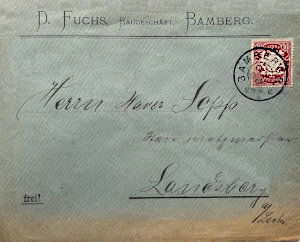 D. FUCHS, BAUGESCHÄFT, BAMBERG.
BAMBERG
Herrn Xaver Sopp
Landsberg
a/Lech.
frei!